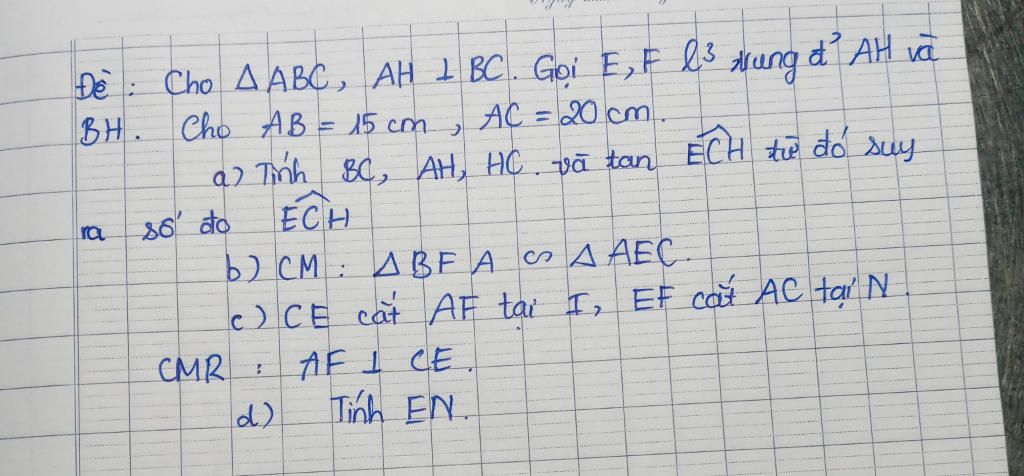 Đề : Cho △ABC, AH ⊥ BC. Gọi E, F l³ trung đ² AH và
BH. Cho AB = 15 cm, AC = 20 cm.
a) Tính BC, AH, HC. và tan ECH từ đó suy
ra số đo ECH
b) CM : △BFA ∽ △AEC.
c) CE cắt AF tại I, EF cắt AC tại N.
CMR : AF ⊥ CE.
d) Tính EN.